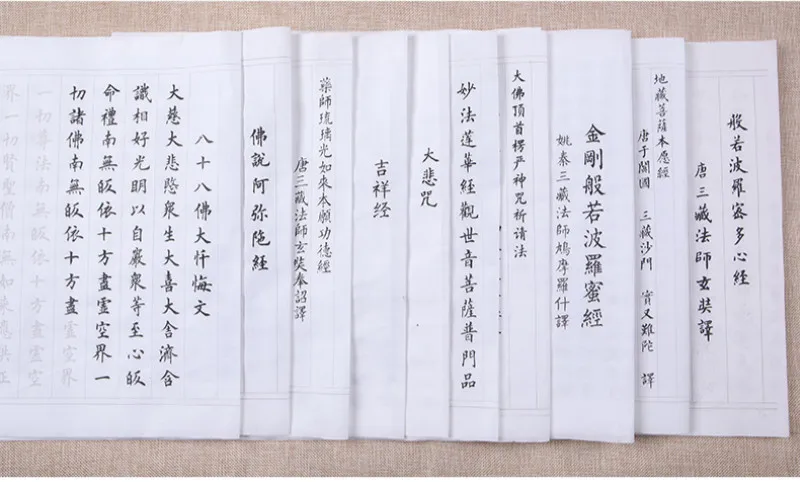 般若波羅蜜多心經
唐三藏法師玄奘譯
地藏菩薩本愿經
唐于闐國 三藏沙門 實叉難陀 譯
金剛般若波羅蜜經
姚秦三藏法師鳩摩羅什譯
大佛頂首楞严神咒祈请法
妙法蓮華經觀世音菩薩普門品
大悲咒
吉祥经
藥師琉璃光如來本願功德經
唐三藏法師玄奘奉詔譯
佛說阿弥陀經
八十八佛大忏悔文
大慈大悲愍衆生大喜大舍濟含
識相好光明以自嚴衆等至心皈
命禮南無皈依十方盡虛空界一
切諸佛南無皈依十方盡虛空界
一切尊法南無皈依十方盡虛空
界一切賢聖僧南無如來應供正